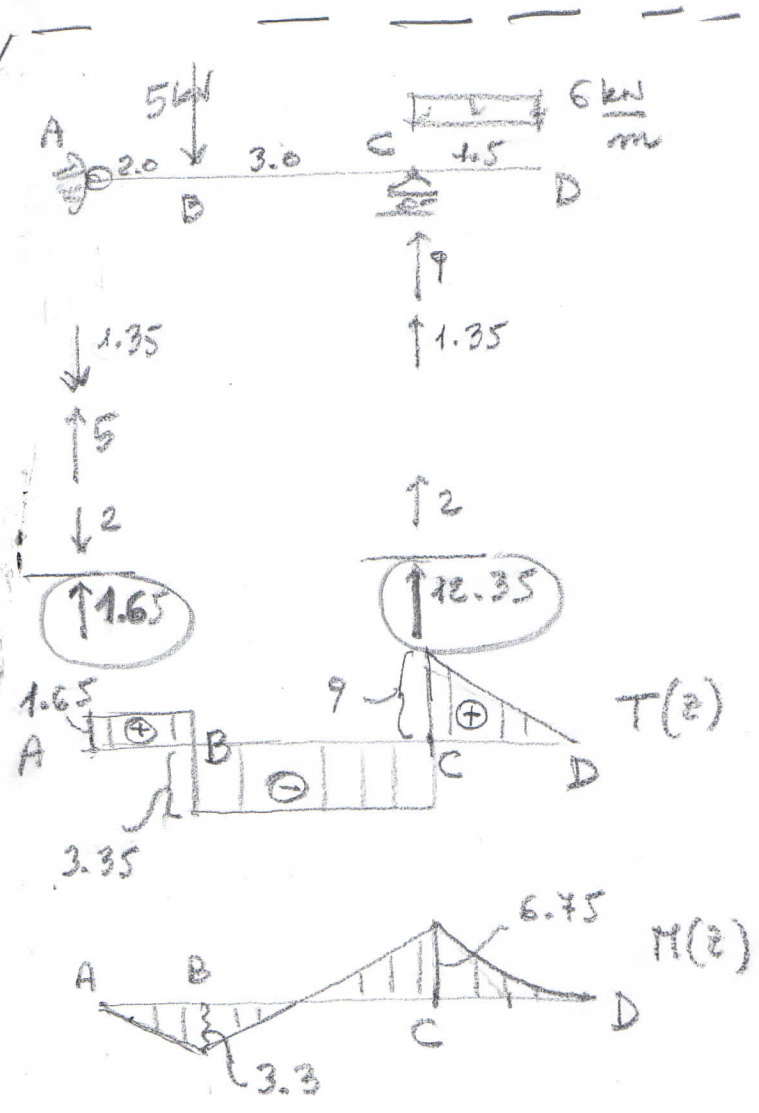 5kN
6 kN/m
A
2.0
3.0
C
1.5
B
D
9
1.35
1.35
5
2
2
1.65
12.35
1.65
9
+
+
T(z)
A
B
C
D
-
3.35
6.75
M(z)
A
B
D
C
3.3